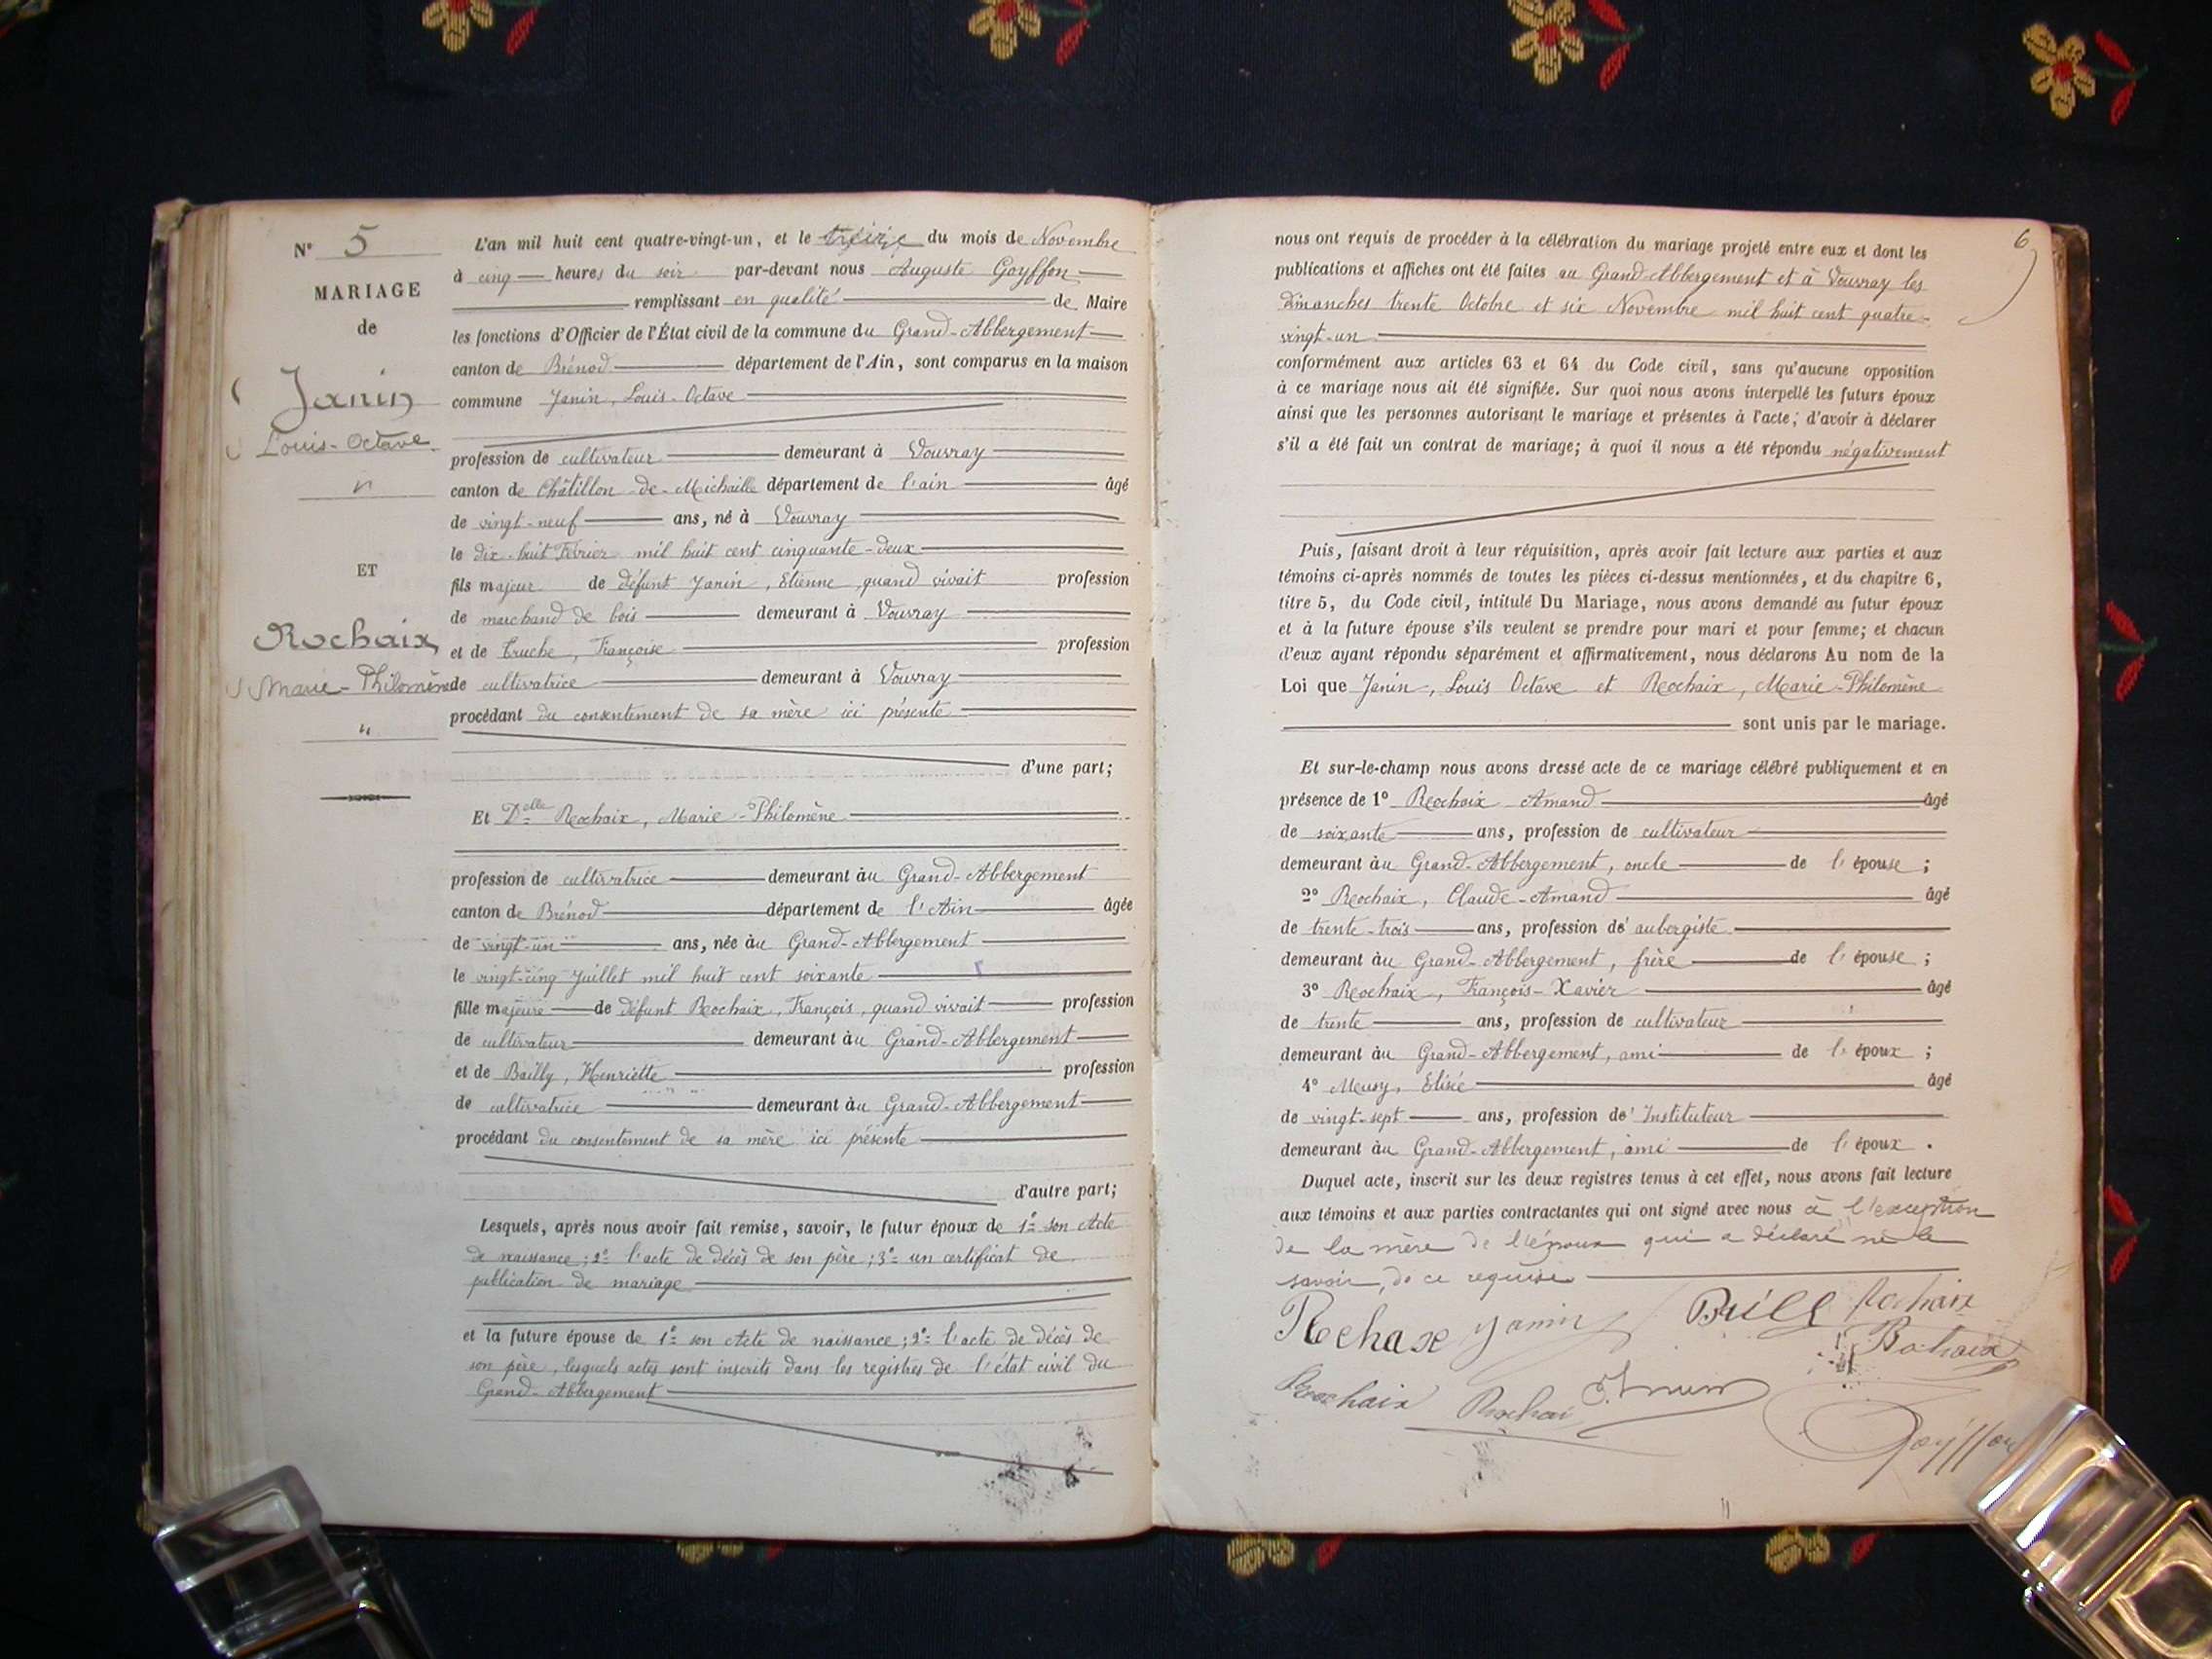 N° 5
MARIAGE
de
Janin
Louis-Octave
"
ET
Rochaix
Marie-Philomène
"
L'an mil huit cent quatre-vingt-un, et le treize du mois de Novembre
à cinq heures du soir par-devant nous Auguste Goyffon
remplissant en qualité de Maire
les fonctions d'Officier de l'État civil de la commune du Grand-Abbergement
canton de Brénod département de l'Ain, sont comparus en la maison
commune Janin, Louis-Octave
profession de cultivateur demeurant à Vouvray
canton de Châtillon-de-Michaille département de l'ain âgé
de vingt-neuf ans, né à Vouvray
le dix-huit Février mil huit cent cinquante-deux
fils majeur de défunt Janin, Etienne, quand vivait profession
de marchand de bois demeurant à Vouvray
et de Truche, Françoise profession
de cultivatrice demeurant à Vouvray
procédant du consentement de sa mère ici présente
d'une part;
Et Delle Rochaix, Marie-Philomène
profession de cultivatrice demeurant au Grand-Abbergement
canton de Brénod département de l'Ain âgée
de vingt-un ans, née au Grand-Abbergement
le vingt-cinq Juillet mil huit cent soixante
fille majeure de défunt Rochaix, François, quand vivait profession
de cultivateur demeurant au Grand-Abbergement
et de Bailly, Henriette profession
de cultivatrice demeurant au Grand-Abbergement
procédant du consentement de sa mère ici présente
d'autre part;
Lesquels, après nous avoir fait remise, savoir, le futur époux de 1° son Acte
de naissance; 2° l'acte de décès de son père; 3° un certificat de
publication de mariage
et la future épouse de 1° son Acte de naissance; 2° l'acte de décès de
son père, lesquels actes sont inscrits dans les registres de l'état civil du
Grand-Abbergement
6
nous ont requis de procéder à la célébration du mariage projeté entre eux et dont les
publications et affiches ont été faites au Grand-Abbergement et à Vouvray les
Dimanches trente Octobre et six Novembre mil huit cent quatre-
vingt-un
conformément aux articles 63 et 64 du Code civil, sans qu'aucune opposition
à ce mariage nous ait été signifiée. Sur quoi nous avons interpellé les futurs époux
ainsi que les personnes autorisant le mariage et présentes à l'acte, d'avoir à déclarer
s'il a été fait un contrat de mariage; à quoi il nous a été répondu négativement
Puis, faisant droit à leur réquisition, après avoir fait lecture aux parties et aux
témoins ci-après nommés de toutes les pièces ci-dessus mentionnées, et du chapitre 6,
titre 5, du Code civil, intitulé Du Mariage, nous avons demandé au futur époux
et à la future épouse s'ils veulent se prendre pour mari et pour femme; et chacun
d'eux ayant répondu séparément et affirmativement, nous déclarons Au nom de la
Loi que Janin, Louis Octave et Rochaix, Marie-Philomène
sont unis par le mariage.
Et sur-le-champ nous avons dressé acte de ce mariage célébré publiquement et en
présence de 1° Rochaix Amand âgé
de soixante ans, profession de cultivateur
demeurant au Grand-Abbergement, oncle de l'épouse;
2° Rochaix, Claude-Amand âgé
de trente-trois ans, profession d'aubergiste
demeurant au Grand-Abbergement, frère de l'épouse;
3° Rochaix, François-Xavier âgé
de trente ans, profession de cultivateur
demeurant au Grand-Abbergement, ami de l'époux;
4° Meusy, Elisée âgé
de vingt-sept ans, profession d'Instituteur
demeurant au Grand-Abbergement, ami de l'époux.
Duquel acte, inscrit sur les deux registres tenus à cet effet, nous avons fait lecture
aux témoins et aux parties contractantes qui ont signé avec nous à l'exception
de la mère de l'époux qui a déclaré ne le
savoir, de ce requise
Rochax Janin Rochaix
Rochaix
Rochaix Rochai
Goyffon